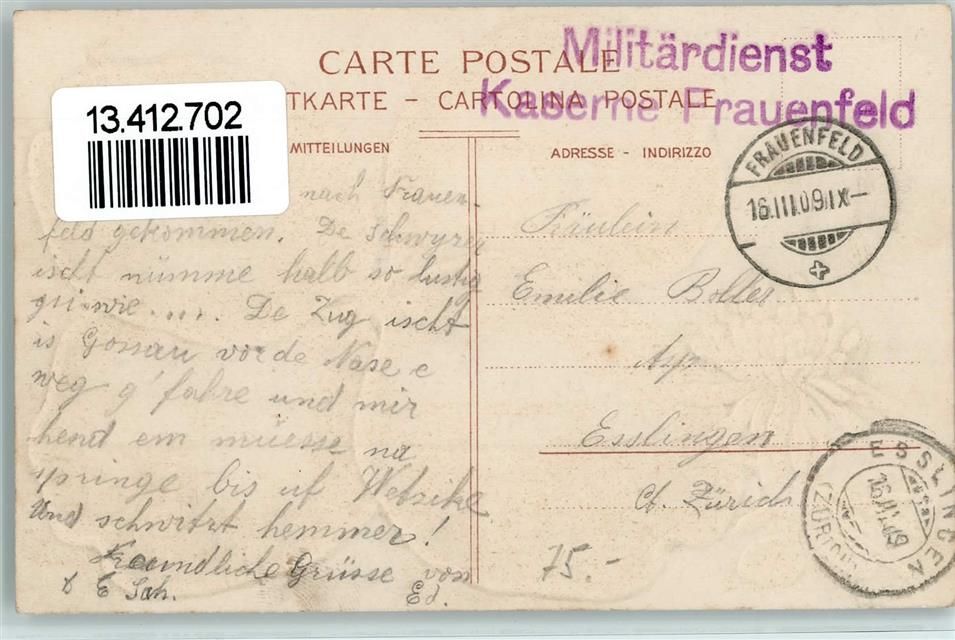 CARTE POSTALE
TKARTE - CARTOLINA POSTALE
Militärdienst
Kaserne Frauenfeld
13.412.702
MITTEILUNGEN
ADRESSE - INDIRIZZO
FRAUENFELD
16.III.09.IX-
nach Frauen-
feld gekommen. De Schwyzer
ischt nümme halb so lustig
gsi wie..... De Zug ischt
is Gossau vor de Nase e
weg g'fahre und mir
hend em müesse na
springe bis uf Wetzike
Und schwitzt hemmer!
Freundliche Grüsse von
E Sch. Ed.
Fräulein
Emilie Boller
Esslingen
Ct. Zürich
75.-
ESSLINGEN
16.III.09
(ZÜRICH)